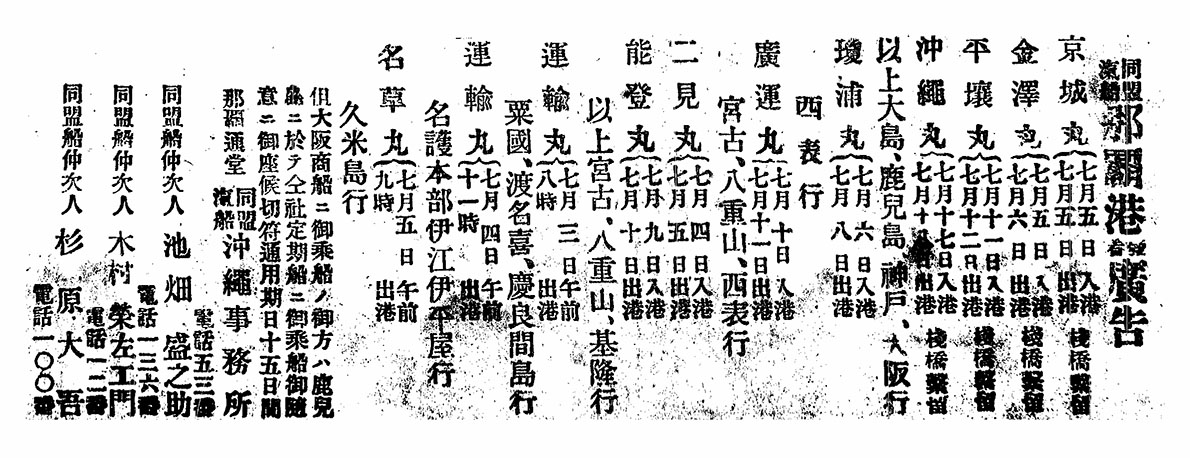 同盟汽船那覇港發着廣告
京城丸 七月五日入港 七月五日出港 棧橋繋留
金澤丸 七月五日入港 七月六日出港 棧橋繋留
平壤丸 七月十一日入港 七月十二日出港 棧橋繋留
沖繩丸 七月十七日入港 七月十八日出港 棧橋繋留
以上大島、鹿兒島、神戸、大阪行
瓊浦丸 七月六日入港 七月八日出港
西表行
廣運丸 七月十日入港 七月十一日出港
宮古、八重山、西表行
二見丸 七月四日入港 七月五日出港
能登丸 七月九日入港 七月十日出港
以上宮古、八重山、基隆行
運輸丸 七月三日午前八時出港
粟國、渡名喜、慶良間島行
運輸丸 七月四日午前十一時出港
名護本部伊江伊平屋行
名草丸 七月五日午前九時出港
久米島行
但大阪商船ニ御乘船ノ御方ハ鹿兒
島ニ於テ仝社定期船ニ御乘船御隨
意ニ御座候切符通用期日十五日間
那覇通堂 同盟汽船沖繩事務所
電話五三番
同盟船仲次人 池畑盛之助
電話一三六番
同盟船仲次人 木村榮左工門
電話一二番
同盟船仲次人 杉原大吾
電話一〇〇番